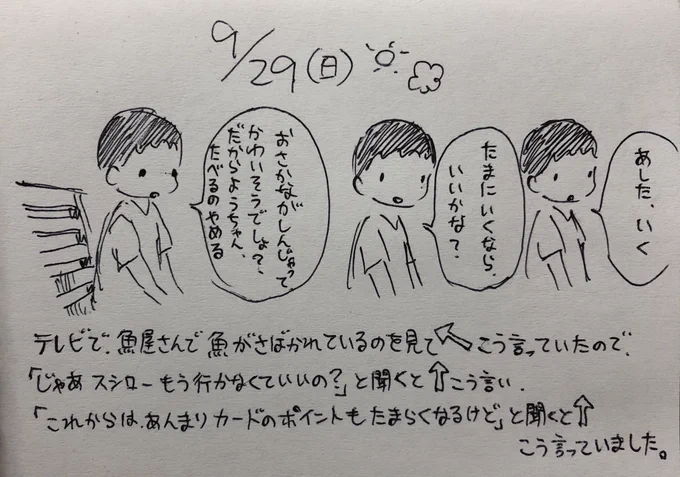 9/29(日)
おさかながしんじゃって、
かわいそうでしょ?、
だからようちゃん、
たべるのやめる
たまにいくなら、
いいかな?
あした、いく
テレビで、魚屋さんで魚がさばかれているのを見て↖こう言っていたので、
「じゃあスシローもう行かなくていいの?」と聞くと⇧こう言い、
「これからは、あんまりカードのポイントもたまらくなるけど」と聞くと⇧
こう言っていました。